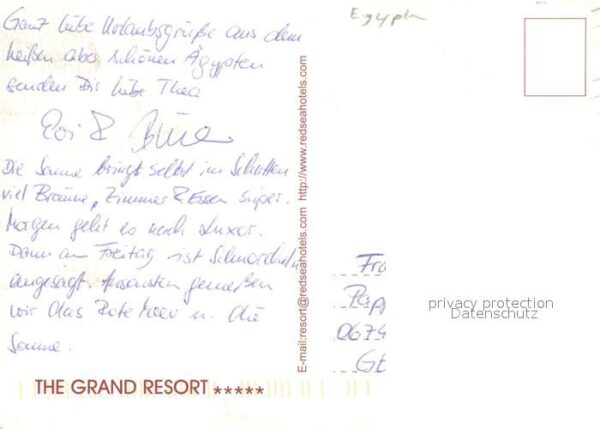 Ganz liebe Urlaubsgrüße aus dem
heißen aber schönen Ägypten
senden Dir liebe Thea
Die Sonne bringt selbst im Schatten
viel Bräune, Zimmer & Essen super.
Morgen geht es nach Luxor.
Dann am Freitag ist Schnorcheln
angesagt. Ansonsten genießen
wir das Rote Meer u. die
Sonne.
THE GRAND RESORT *****
E-mail:resort@redseahotels.com http://www.redseahotels.com
Egypten
Fra
Papp
0674
privacy protection
Datenschutz